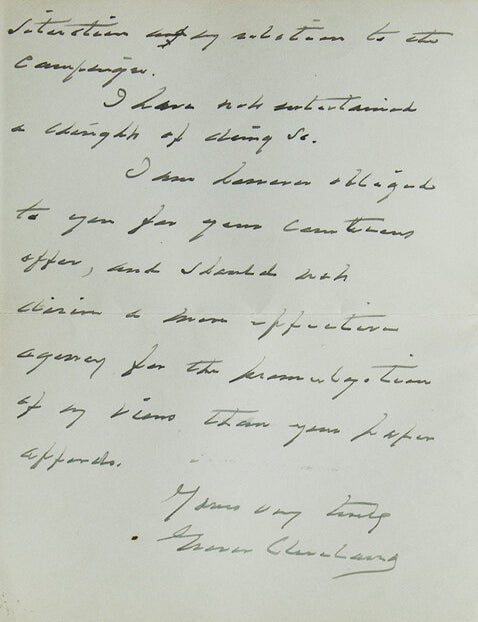 situation or my relation to the
campaign.
I have not entertained
a thought of doing so.
I am however obliged
to you for your courteous
offer, and should not
desire a more effective
agency for the promulgation
of my views than your paper
affords.
Yours very truly
Grover Cleveland